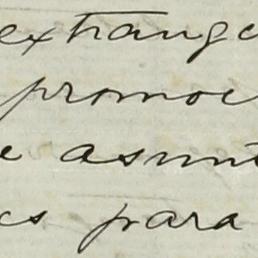 extrange
promoc
e asunt
es para